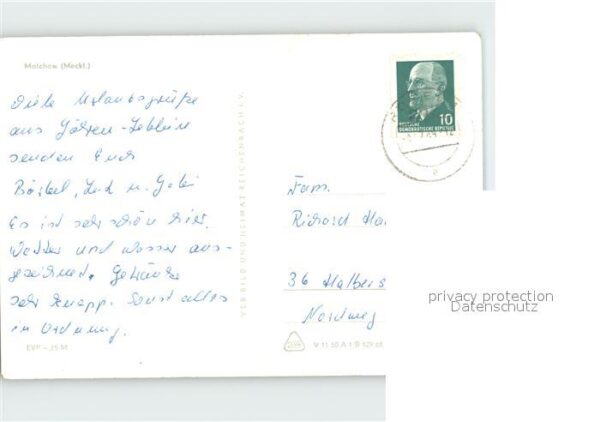 Malchow (Meckl.)
Viele Urlaubsgrüße
aus Göhren-Lebbin
senden Euch
Bärbel, u. Gabi
Es ist sehr schön hier.
Wetter und Wasser aus-
gezeichnet. Getränke
sehr knapp. Sonst alles
in Ordnung.
EVP –
VEB BILD UND HEIMAT REICHENBACH I. V.
10
DEUTSCHE
DEMOKRATISCHE REPUBLIK
Fam.
Richard Ha
36 Halbers
Nordweg
V 11 50 A 1 B
privacy protection
Datenschutz